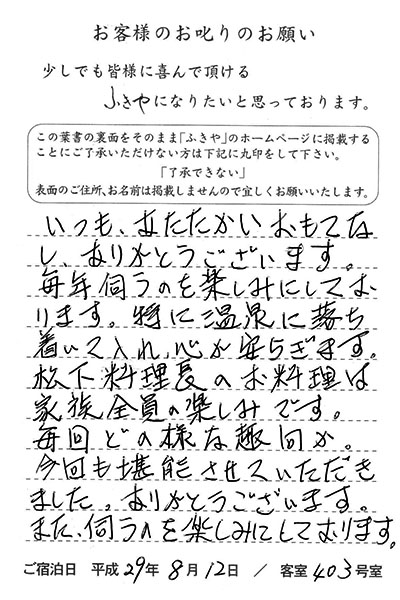 お客様のお叱りのお願い
少しでも皆様に喜んで頂ける
ふきやになりたいと思っております。
この葉書の裏面をそのまま「ふきや」のホームページに掲載する
ことにご了承いただけない方は下記に丸印をして下さい。
「了承できない」
表面のご住所、お名前は掲載しませんので宜しくお願いいたします。
いつも、あたたかいおもてな
し、ありがとうございます。
毎年伺うのを楽しみにしてお
ります。特に温泉に落ち
着いて入れ、心が安らぎます。
松下料理長のお料理は
家族全員の楽しみです。
毎回どの様な趣向か。
今回も堪能させていただき
ました。ありがとうございます。
また、伺うのを楽しみにしております。
ご宿泊日 平成29年8月12日 / 客室403号室